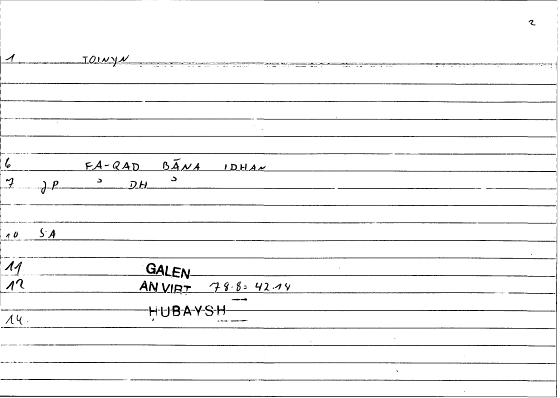 2
1 TOINYN
6 FA-QAD BĀNA IDHAN
7 J.P ᵓ DH ᵓ
10 S.A
11 GALEN
12 AN VIRT 78.8 = 42.14
ḤUBAYSH
14.